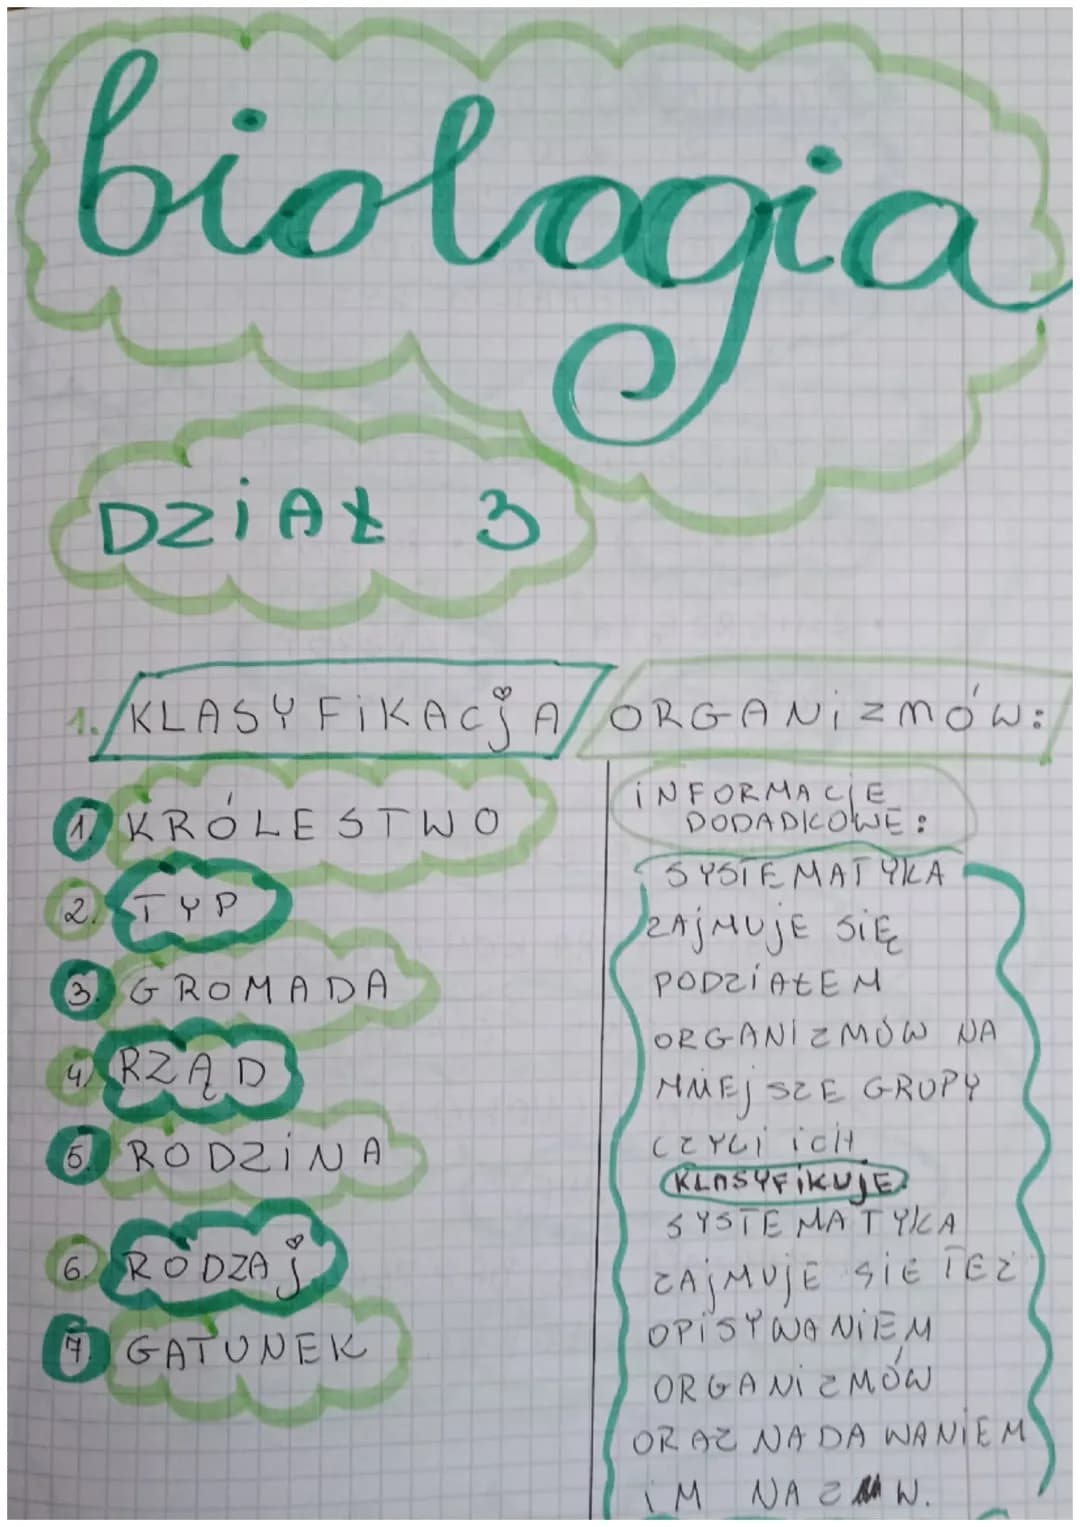 biologia
DZIAŁ 3
1. KLASYFIKACJA ORGANIZMÓW:
1. KRÓLESTWO
2. TYP
3. GROMADA
4. RZĄD
5. RODZINA
6. RODZAJ
7. GATUNEK
INFORMACJE
DODADKOWE:
SYSTEMATYKA
ZAJMUJE SIĘ
PODZIAŁEM
ORGANIZMÓW NA
MNIEJSZE GRUPY
CZYLI ICH
KLASYFIKUJE.
SYSTEMATYKA
ZAJMUJE SIE TEZ
OPISYWANIEM
ORGANIZMÓW
ORAZ NADAWANIEM
IM NAZW.